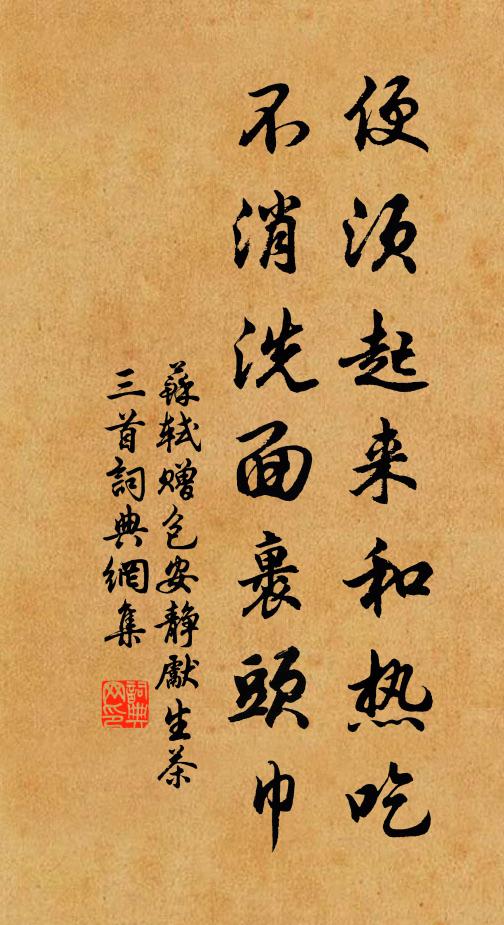 便须起来和热吃
不消洗面裹頭巾
蘇軾赠包安静獻生茶
三首詞典網集
詞典
网印